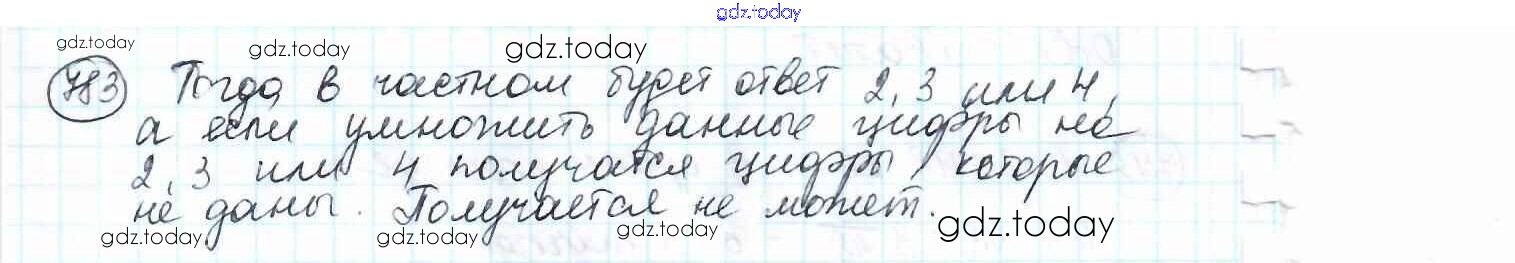 gdz.today
gdz.today gdz.today gdz.today
783 Тогда в частном будет ответ 2, 3 или 4,
а если умножить данные цифры на
2, 3 или 4 получатся цифры, которые
не даны. Получается не может.
gdz.today gdz.today gdz.today gdz.today